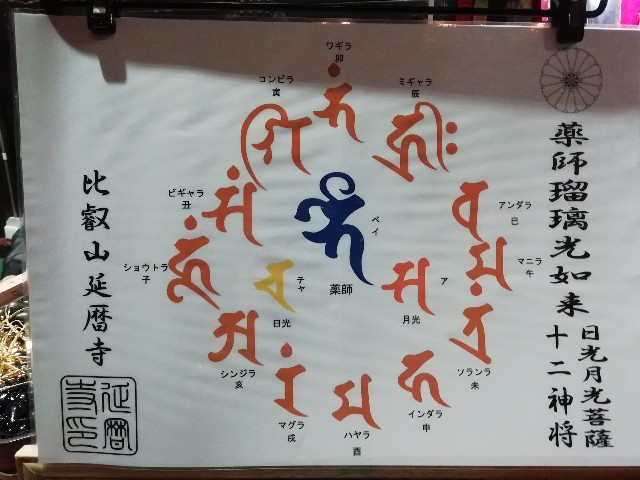 薬師瑠璃光如来
日光月光菩薩
十二神将
ワギラ
卯
ミギャラ
辰
アンダラ
巳
マニラ
午
ソランラ
未
インダラ
申
ハヤラ
酉
マグラ
戌
シンジラ
亥
ショウトラ
子
ビギャラ
丑
コンビラ
寅
ベイ
薬師
チャ
日光
ア
月光
比叡山延暦寺
延暦
寺印